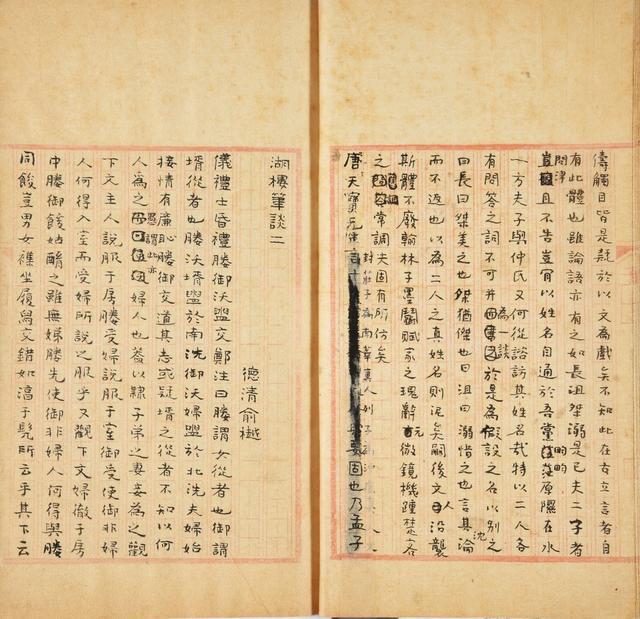 儔觸目皆是託於以文為戲矣不知此在古立言者自
有此體也雖論語亦有之如長沮桀溺是已夫二子者
問津且不告豈肯以姓名自通於吾黨畇畇原隰在水
一方夫子與仲氏又何從諮訪其姓名哉特以二人各
有問答之詞不可并為一談於是為假設之名以別之
曰長曰桀美之也桀猶傑也曰沮曰溺惜之也言其沈淪
而不返也以為二人之真姓名則泥矣嗣後文人沿襲
斯體不廢翰林子墨鬭賦家之瑰辭玩微鏡機踵楚客
之常調夫固有所仿矣
唐天寶元年封莊子為南華真人列子固也乃孟子
湖樓筆談二
德清俞樾
儀禮士昏禮媵御沃盥交鄭注曰媵謂女從者也御謂
壻從者也媵沃壻盥於南洗御沃婦盥於北洗夫婦始
接情有廉恥媵御交道其志或疑壻之從者不知以何
人為之愚謂此亦婦人也蓋以隸子弟之妻妾為之觀
下文主人說服于房媵受婦說服于室御受使御非婦
人何得入室而受婦所說之服乎又觀下文婦徹于房
中媵御餕姑酳之雖無娣媵先使御非婦人何得與媵
同餕豈男女襍坐履舄交錯如淳于髡所云乎其下云